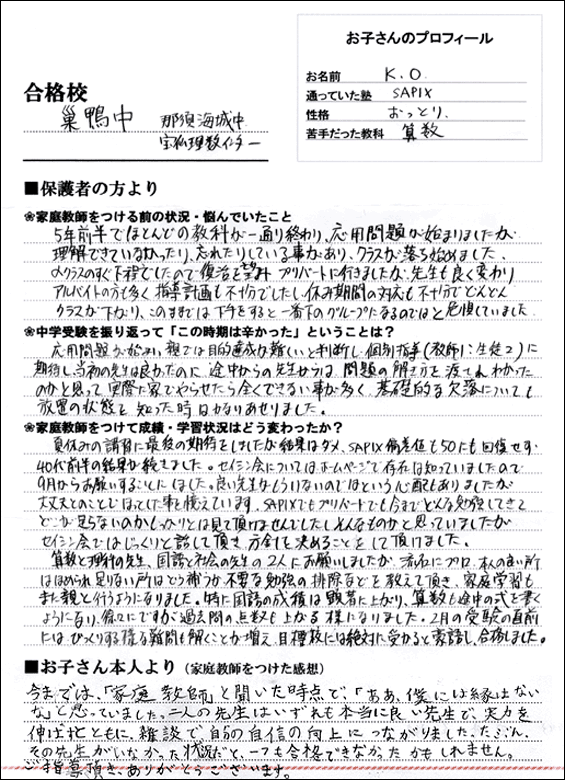 お子さんのプロフィール
お名前 K.O.
通っていた塾 SAPIX
性格 おっとり.
苦手だった教科 算数
合格校
巣鴨中 那須海城中
宝仙理数インター
■保護者の方より
❀家庭教師をつける前の状況・悩んでいたこと
5年前半でほとんどの教科が一通り終わり、応用問題が始まりましたが
理解できていなかったり、忘れたりしている事があり、クラスが落ち始めました、
αクラスのすぐ下程でしたので復活を望み プリバートに行きましたが、先生も良く変わり
アルバイトの方も多く 指導計画も不十分でしたし、休み期間の対応も不十分でどんどん
クラスが下がり、このままでは下手をすると一番下のグループになるのではと危惧していました
❀中学受験を振り返って「この時期は辛かった」ということは？
応用問題が始まり、親では目的達成が難しいと判断し 個別指導(教師1：生徒2)に
期待し、当初の先生は良かったのに 途中からの先生からは 問題の解き方を
のかと思って 実際に家でやらせたら全くできない事が多く、基礎的な欠落についても
放置の状態と知った時はかなりあせりました。
❀家庭教師をつけて成績・学習状況はどう変わったか？
夏休みの講習に最後の期待をしましたが結果はダメ、SAPIX偏差値も50にも回復せず
40代前半の結果が続きました。セイシン会についてはホームページで存在は知っていましたので
9月からお願いすることにしました。良い先生がもういないのではという心配もありましたが
大丈夫とのことでほっとした事を憶えています、SAPIXでもプリバートでも今までどんな勉強してきて
どこが足らないのかしっかりとは見て頂けませんでしたし、そんなものかと思っていましたが
セイシン会ではじっくりと話して頂き、方針を決めることをして頂けました。
算数と理科の先生、国語と社会の先生の2人にお願いしましたが、流石にプロ、本人の良い所
はほめられ 足りない所はどう補うか 不要な勉強の排除などを教えて頂き、家庭学習も
また親と行うようになりました。特に国語の成績は顕著に上がり、算数も途中の式を書く
ようになり、徐々にですが過去問の点数も上がる様になりました。2月の受験の直前
にはびっくりする様な難問も解くことが増え、目標校には絶対に受かると家語し、合格しました。
■お子さん本人より (家庭教師をつけた感想)
今までは、「家庭教師」と聞いた時点で、「ああ、僕には縁はない
な」と思っていました。二人の先生はいずれも本当に良い先生で、実力を
伸ばすとともに、雑談で自分の自信の向上につながりました。たぶん、
その先生がいなかった状況だと、一つも合格できなかったかもしれません。
ご指導頂き、ありがとうございます。